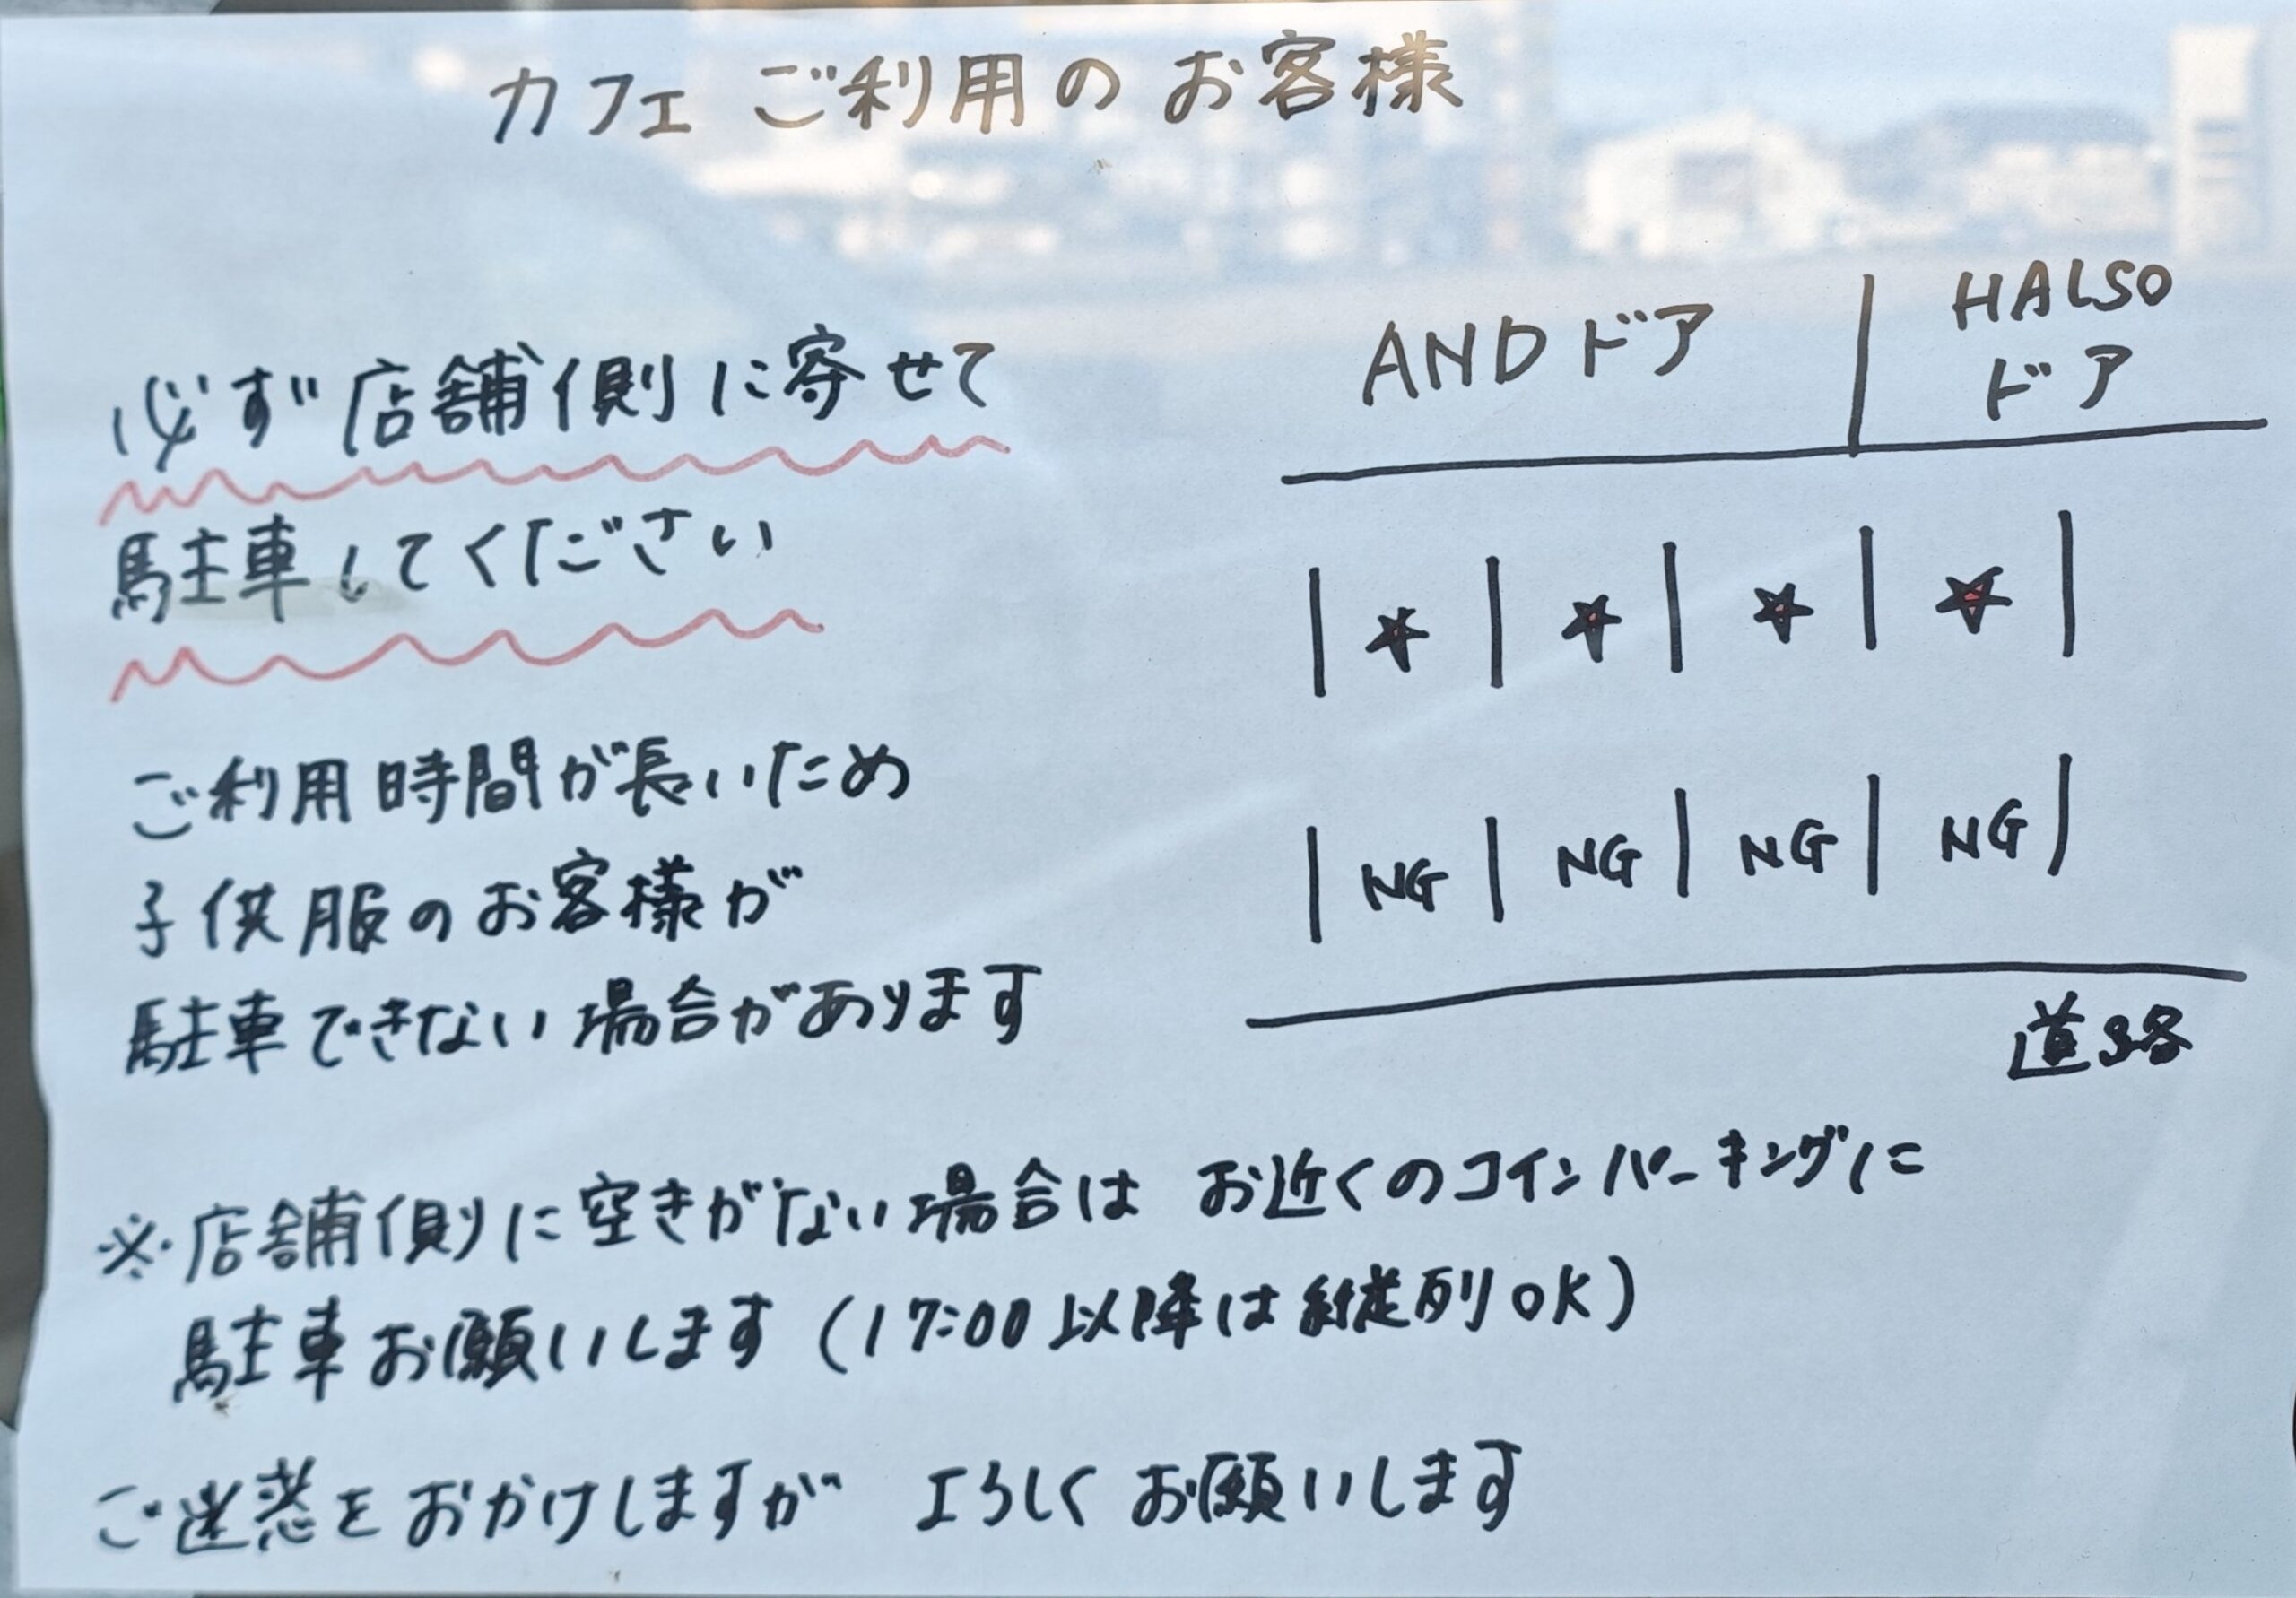 カフェ ご利用の お客様
必ず 店舗側に寄せて
駐車してください
ご利用時間が長いため
子供服のお客様が
駐車できない場合があります
ANDドア
HALSO
ドア
☆ ☆ ☆ ☆
NG NG NG NG
道路
※店舗側に空きがない場合は お近くのコインパーキングに
駐車お願いします(17:00以降は縦列OK)
ご迷惑をおかけしますが よろしくお願いします